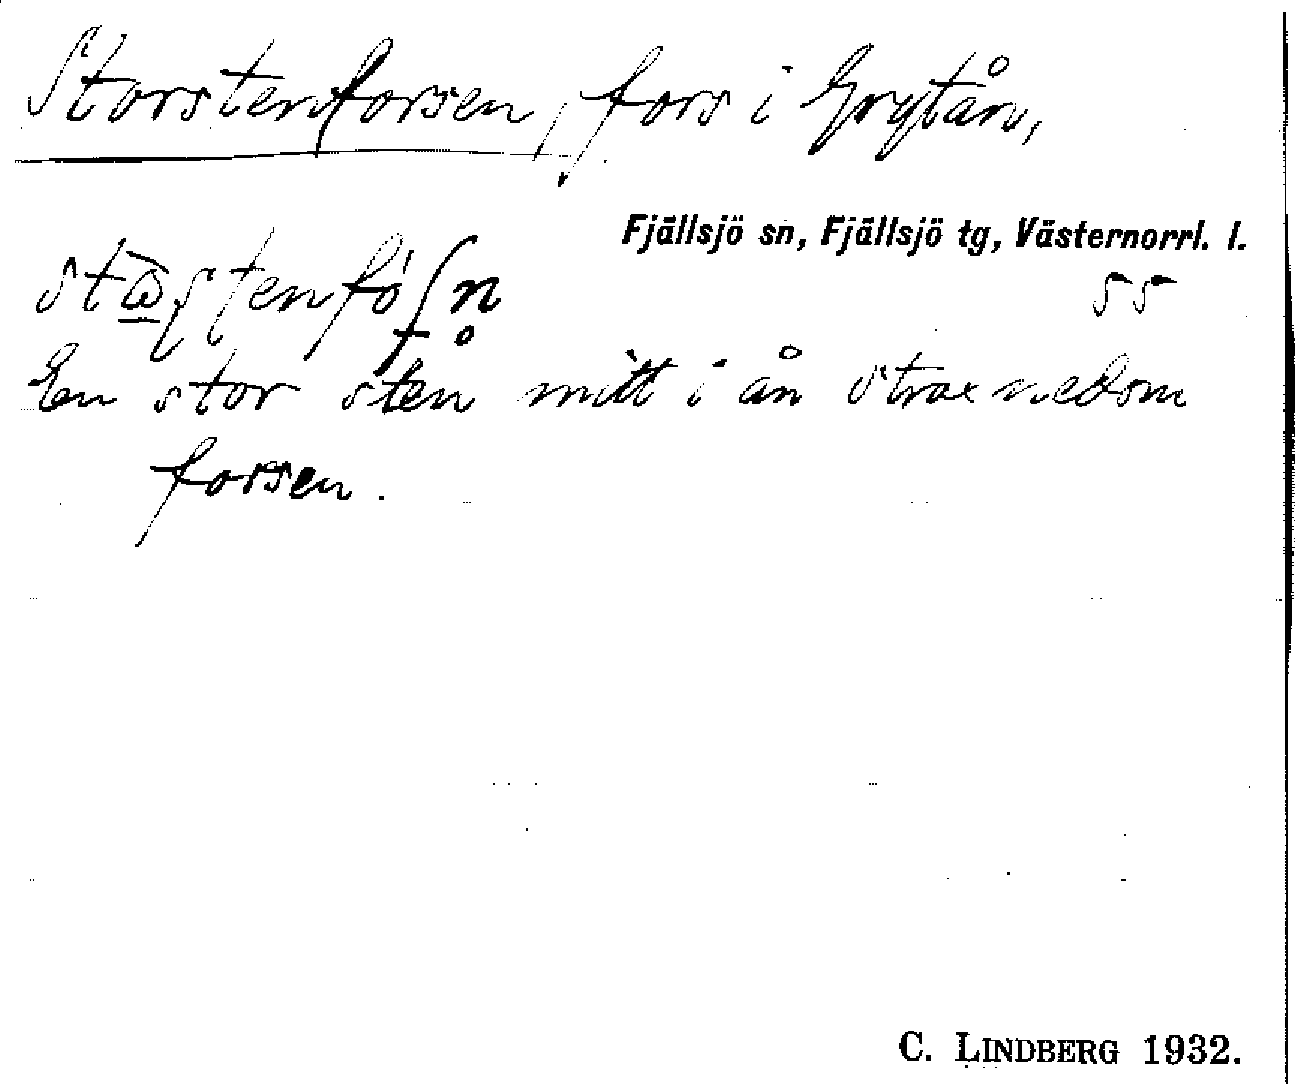 Storstenforsen, fors i Grytån,
Fjällsjö sn, Fjällsjö tg, Västernorrl. l.
55
En stor sten mitt i ån strax nedom
forsen.
C. LINDBERG 1932.